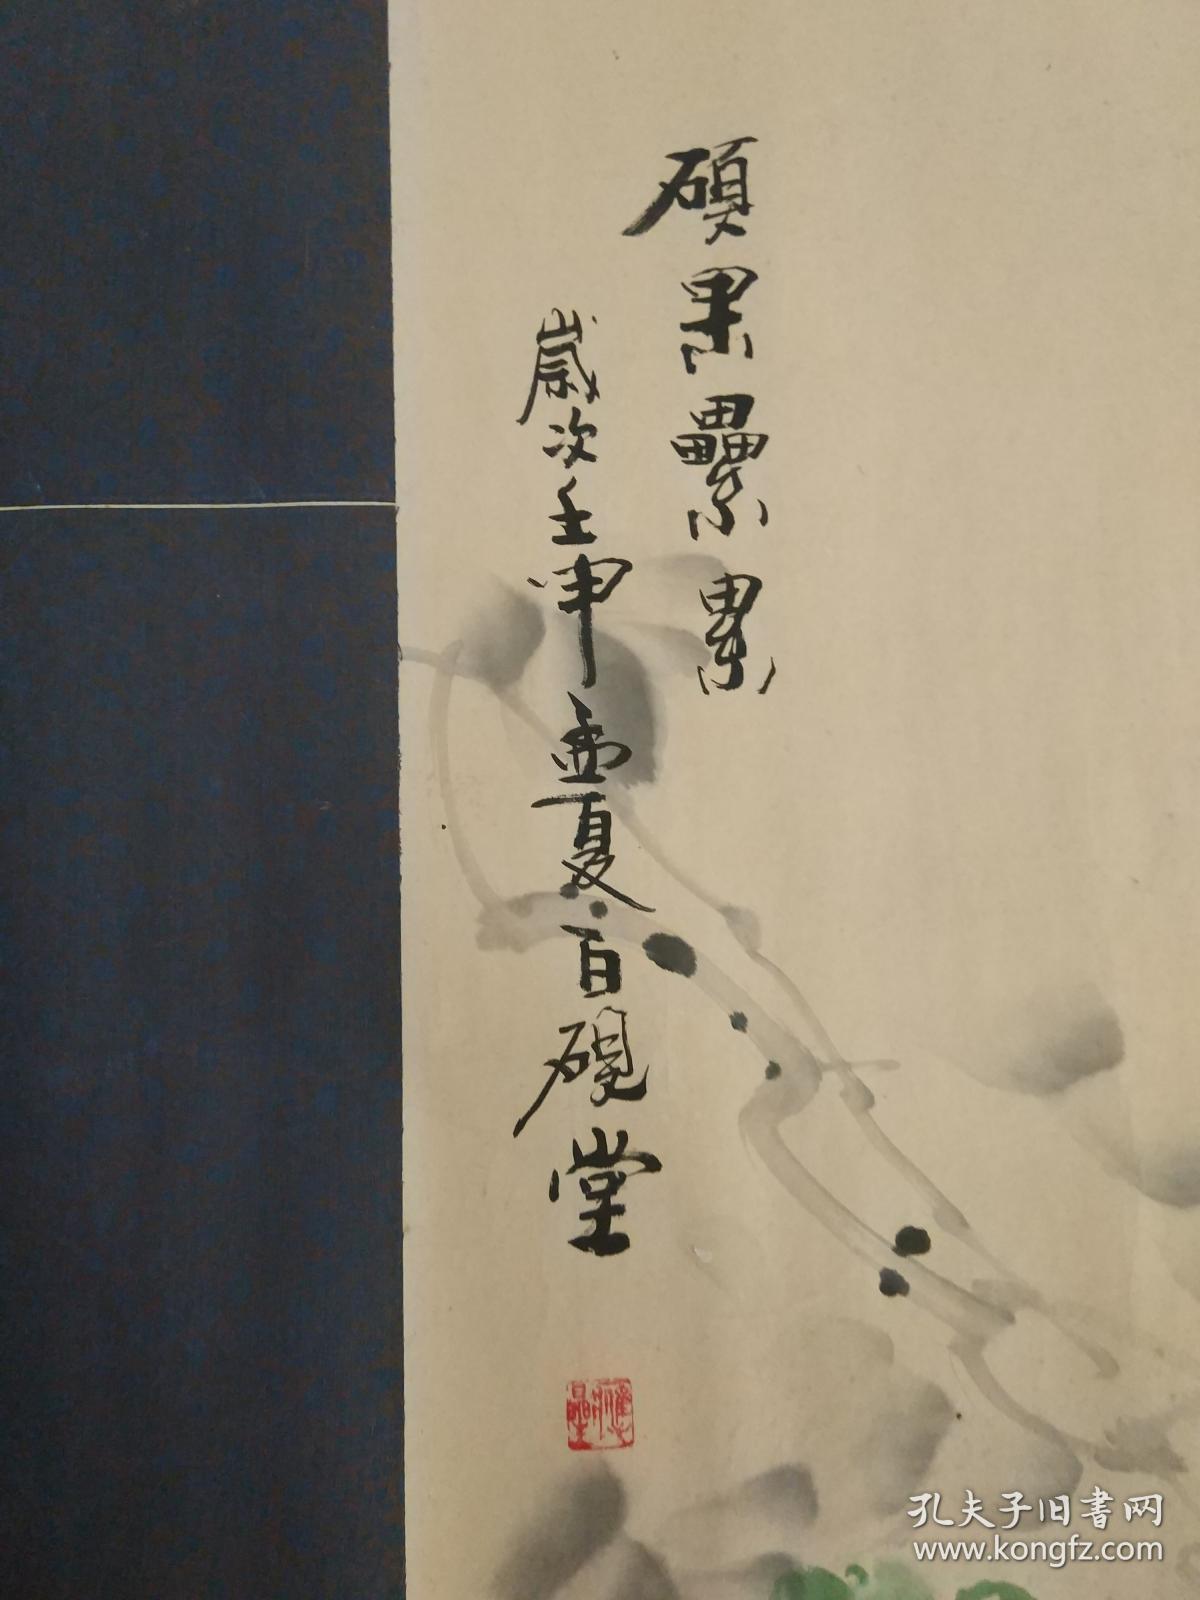 碩果纍累
歲次壬申孟夏百硯堂
孔夫子旧書网
www.kongfz.com